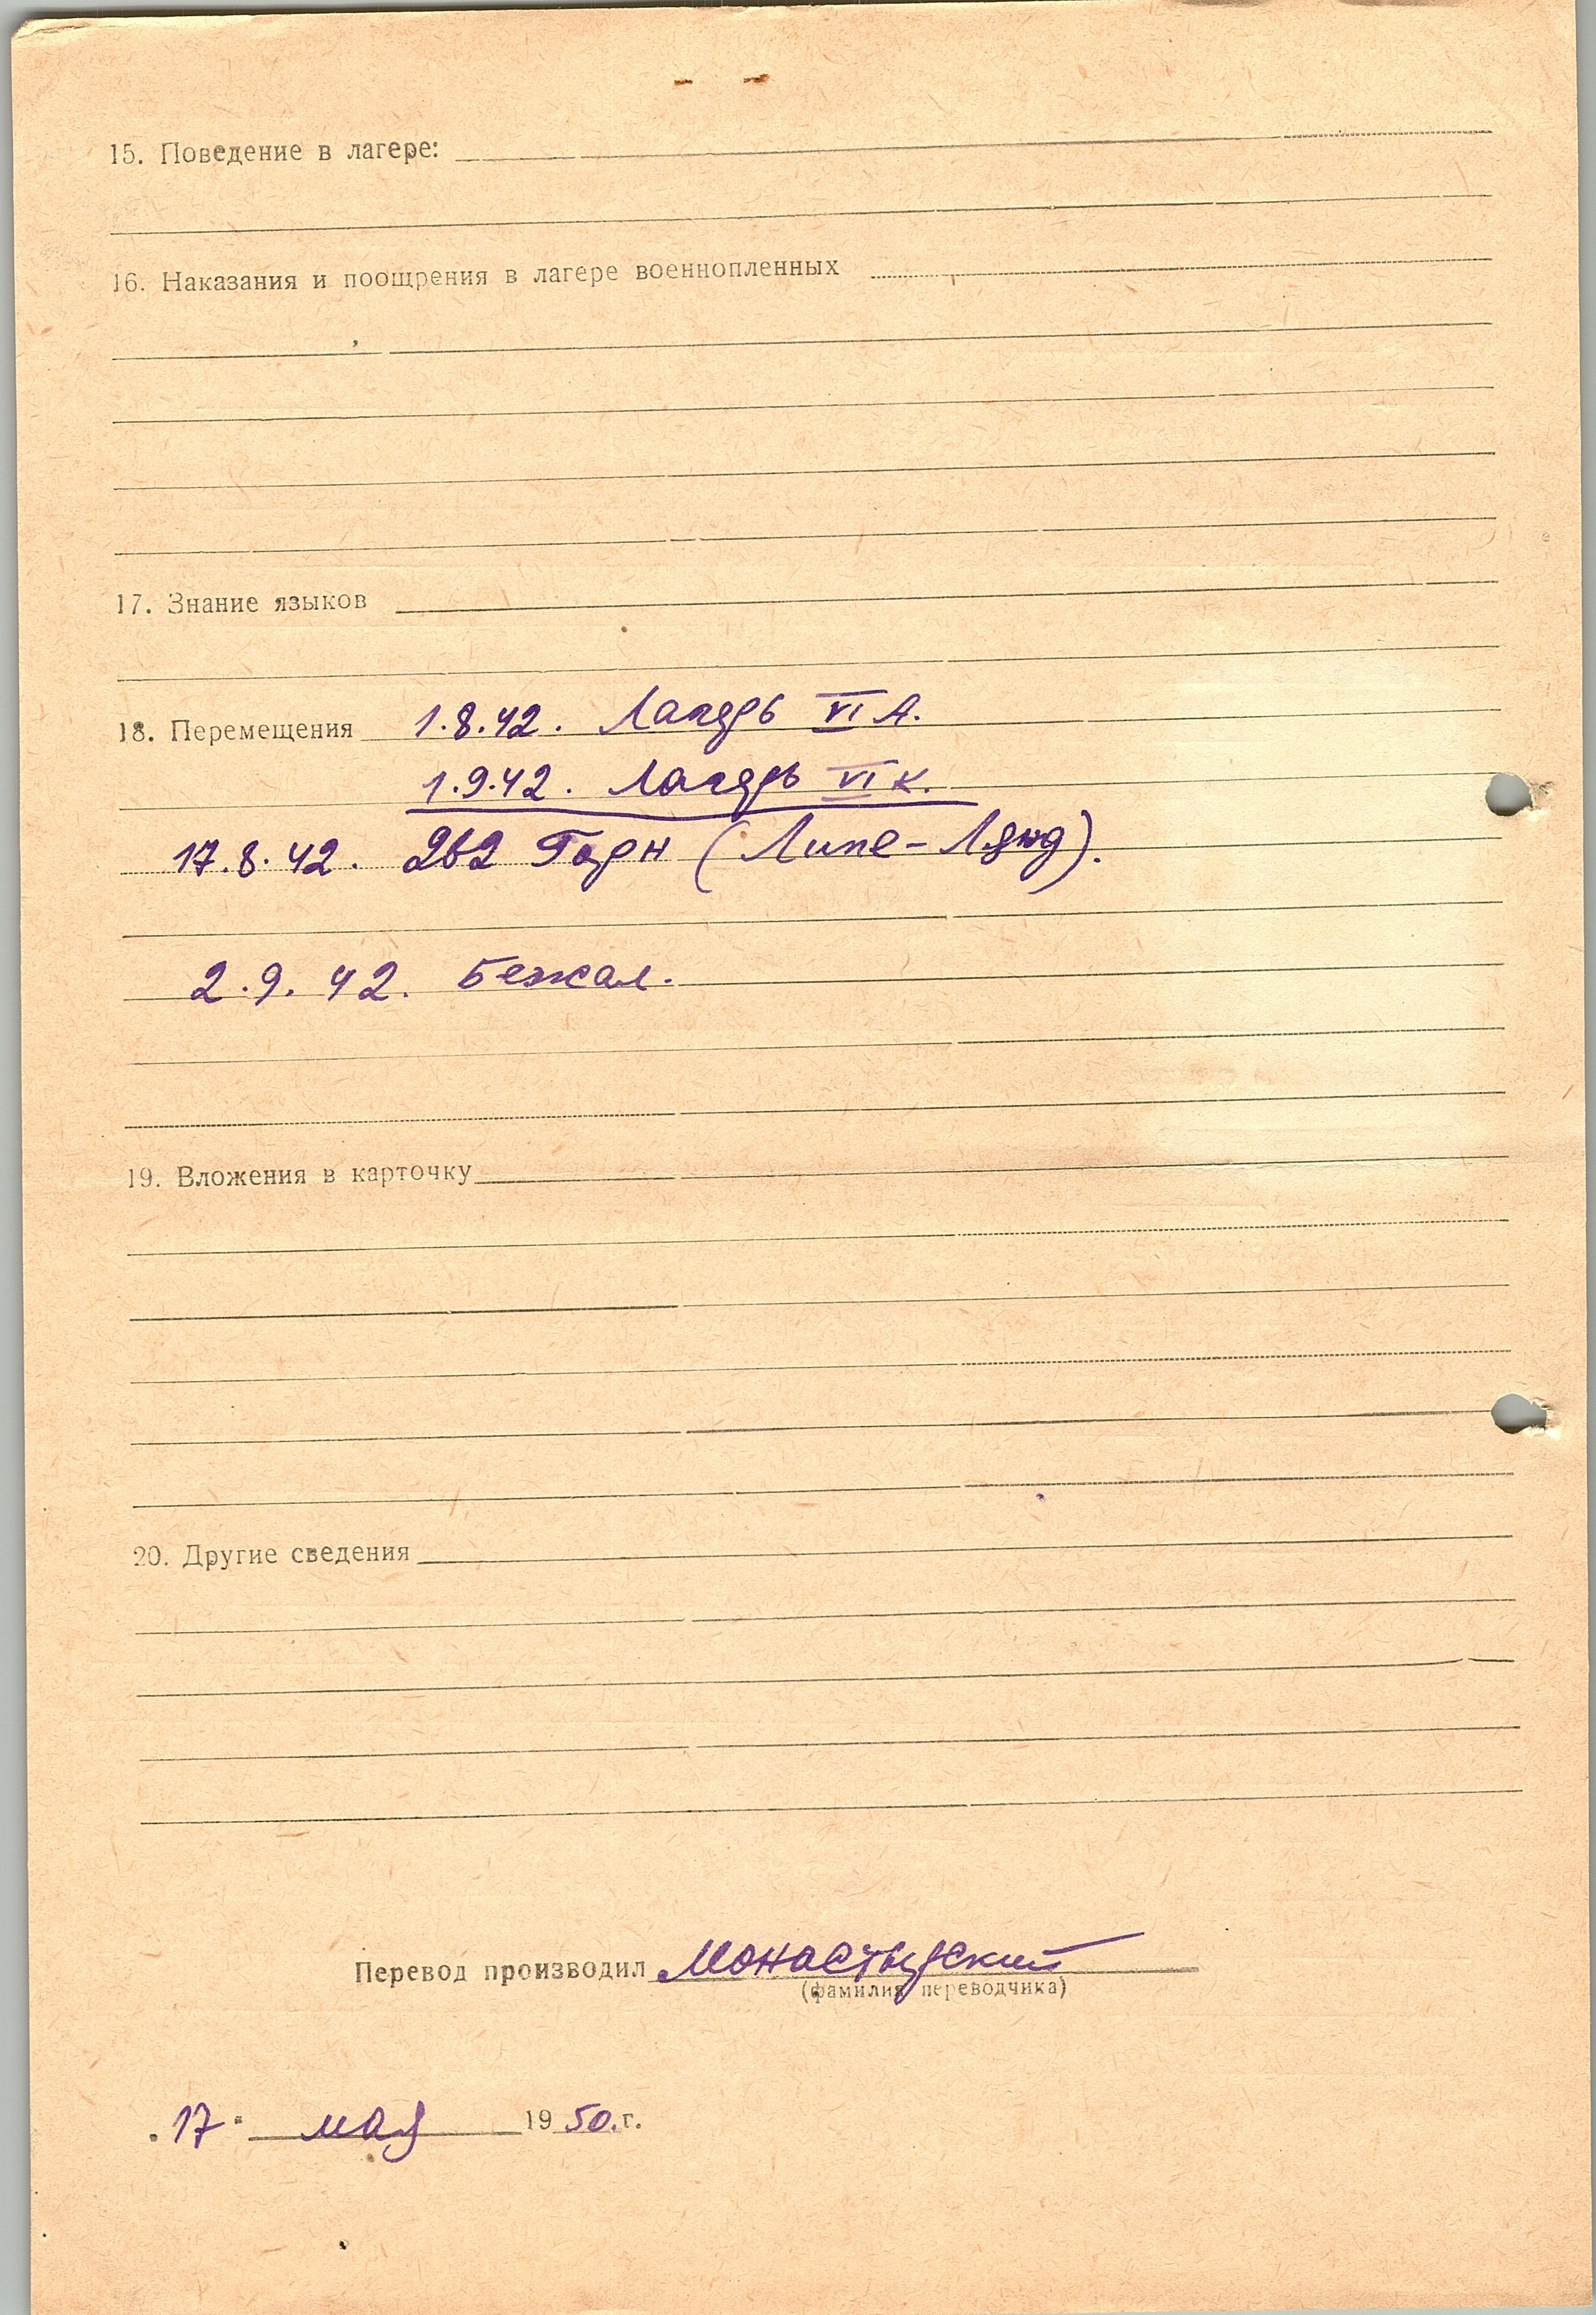 15. Поведение в лагере:
16. Наказания и поощрения в лагере военнопленных
17. Знание языков
18. Перемещения 1.8.42. Лагерь VI А.
1.9.42. Лагерь VI К.
17.8.42. 262 Горн (Липе-Лянд).
2.9.42. Бежал.
19. Вложения в карточку
20. Другие сведения
Перевод производил Монастырский
(фамилия переводчика)
"17" мая 1950.г.